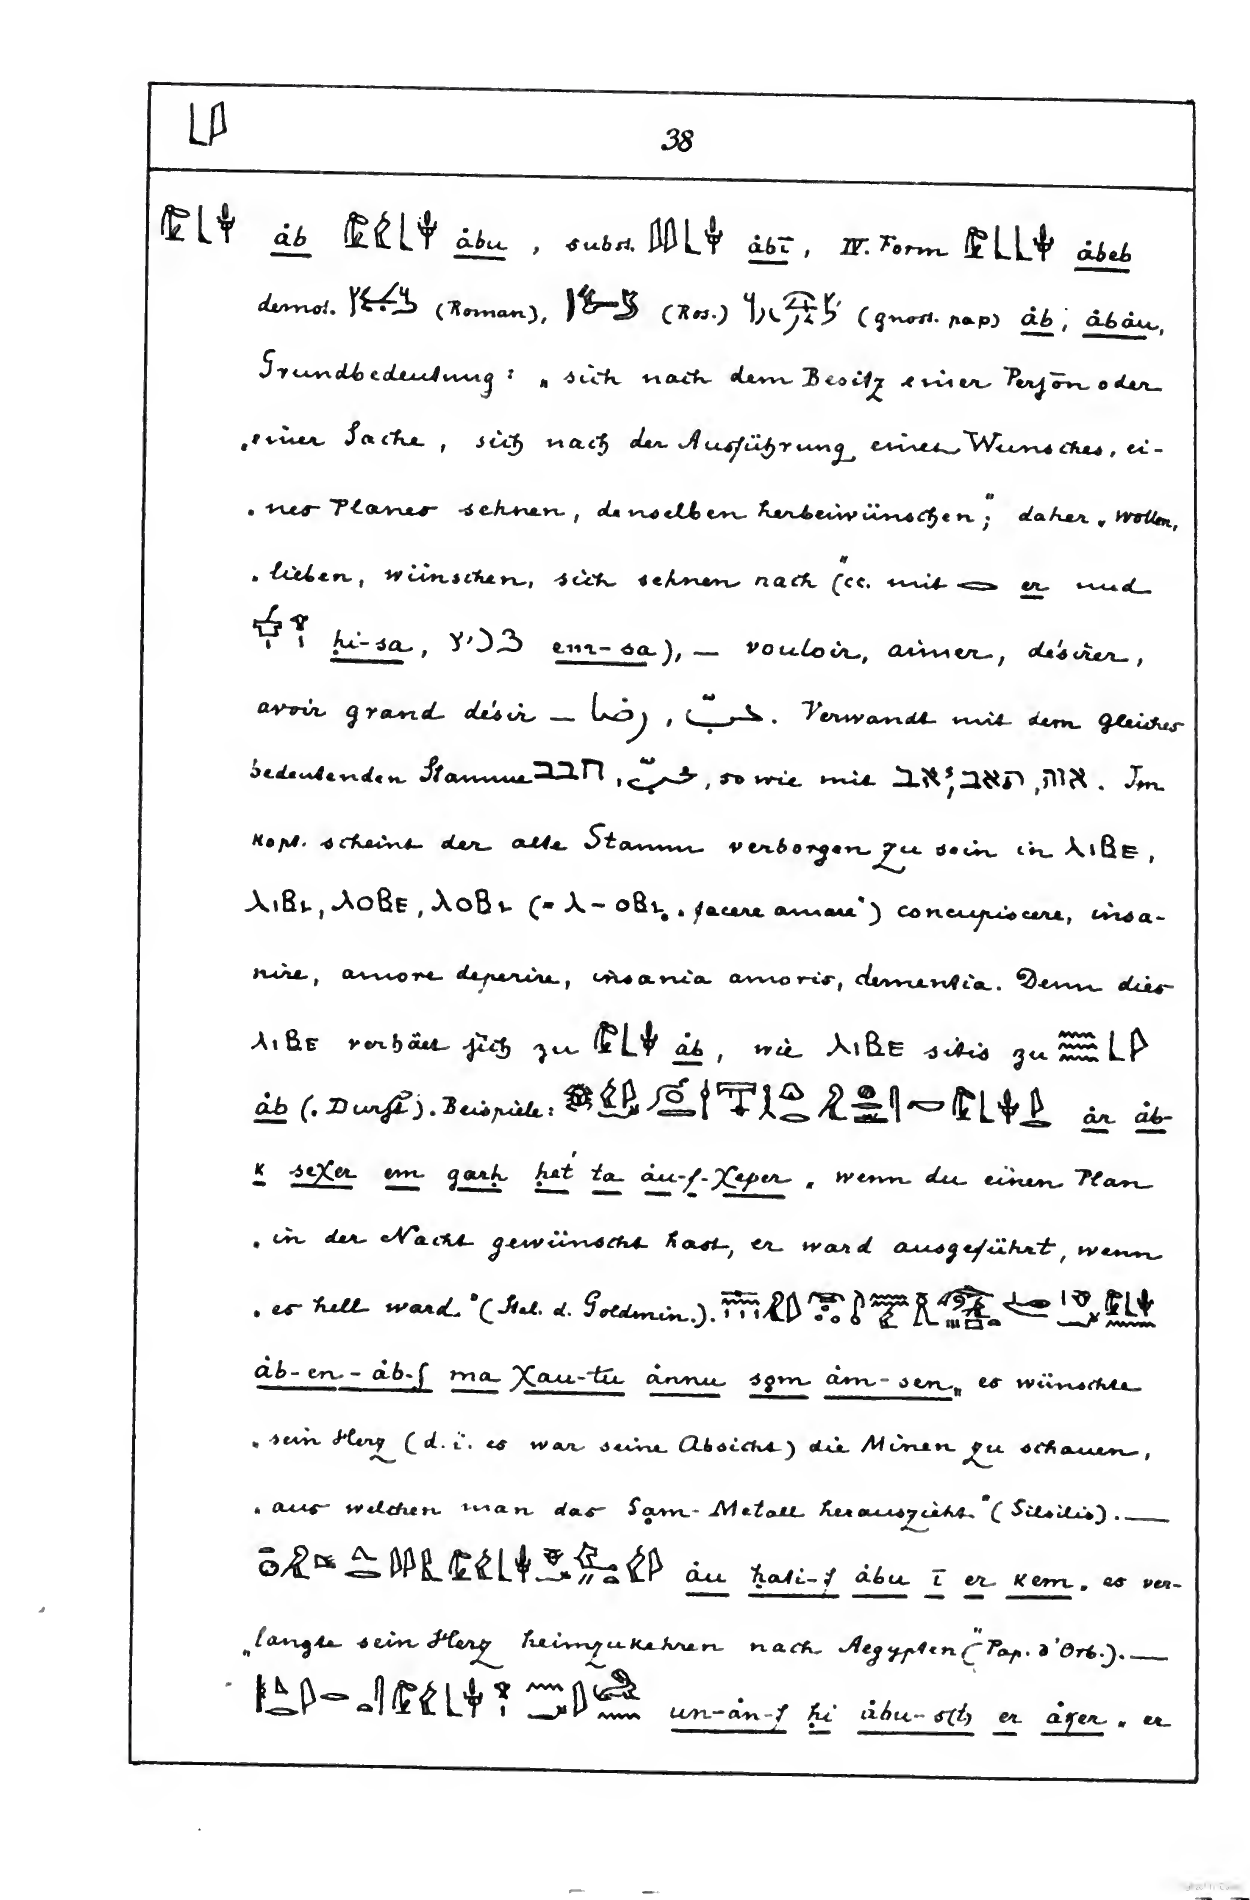 38
åb åbu, subst. åbī, IV. Form åbeb
demot. (Roman), (Ros.) (gnost. pap) åb, åbåu,
Grundbedeutung: „sich nach dem Besitz einer Person oder
„einer Sache, sich nach der Ausführung eines Wunsches, ei-
„nes Planes sehnen, denselben herbeiwünschen“; daher „wollen,
„lieben, wünschen, sich sehnen nach“ (cc. mit er und
ḥi-sa, em-sa), — vouloir, aimer, désirer,
avoir grand désir — رضا, حبّ. Verwandt mit dem gleiches
bedeutenden Stamme חבב, حبّ, so wie mit אוה, תאב, יאב. Im
Kopt. scheint der alte Stamm verborgen zu sein in ⲗⲓⲃⲉ,
ⲗⲓⲃⲓ, ⲗⲟⲃⲉ, ⲗⲟⲃⲓ (= ⲗ-ⲟⲃⲓ „facere amare“) concupiscere, insa-
nire, amore deperire, insania amoris, dementia. Denn dies
ⲗⲓⲃⲉ verhält sich zu åb, wie ⲗⲓⲃⲉ sitis zu
åb („Durst“). Beispiele: år åb-
k seχer em garḥ ḥet' ta åu-f-χeper „wenn du einen Plan
„in der Nacht gewünscht hast, er ward ausgeführt, wenn
„es hell ward.“ (Stel. d. Goldmin.).
åb-en-åb-f ma χau-tu ånnu sqm åm-sen „es wünschte
„sein Herz (d. i. es war seine Absicht) die Minen zu schauen,
„aus welchen man das Sqm-Metall herauszieht.“ (Silsilis). —
åu ḥati-f åbu ī er kem „es ver-
„langte sein Herz heimzukehren nach Aegypten“ (Pap. d'Orb.). —
un-ån-f ḥi åbu-s er „er